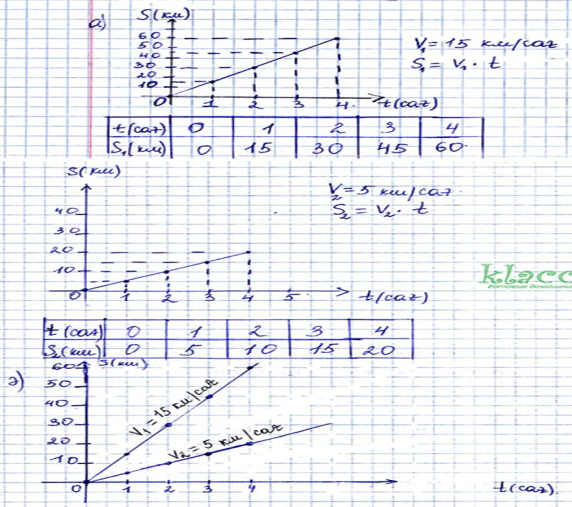 а)
S(км)
60
50
40
30
20
10
0 1 2 3 4 t(сағ)
V₁=15 км/сағ
S₁ = V₁ · t
t(сағ) 0 1 2 3 4
S₁(км) 0 15 30 45 60
S(км)
40
30
20
10
0 1 2 3 4 5 t(сағ)
V₂=5 км/сағ
S₂ = V₂ · t
klacc
t(сағ) 0 1 2 3 4
S₂(км) 0 5 10 15 20
ә)
S(км)
60
50
40
30
20
10
0 1 2 3 4 t(сағ)
V₁=15 км/сағ
V₂=5 км/сағ